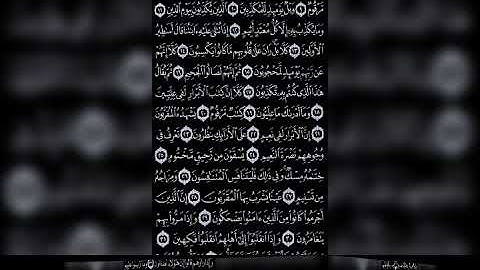 مَّرْقُومٌ ٩ وَيْلٌ يَوْمَئِذٍ لِّلْمُكَذِّبِينَ ١٠ ٱلَّذِينَ يُكَذِّبُونَ بِيَوْمِ ٱلدِّينِ ١١
وَمَا يُكَذِّبُ بِهِۦٓ إِلَّا كُلُّ مُعْتَدٍ أَثِيمٍ ١٢ إِذَا تُتْلَىٰ عَلَيْهِ ءَايَٰتُنَا قَالَ أَسَٰطِيرُ
ٱلْأَوَّلِينَ ١٣ كَلَّا بَلْ رَانَ عَلَىٰ قُلُوبِهِم مَّا كَانُوا۟ يَكْسِبُونَ ١٤ كَلَّآ إِنَّهُمْ
عَن رَّبِّهِمْ يَوْمَئِذٍ لَّمَحْجُوبُونَ ١٥ ثُمَّ إِنَّهُمْ لَصَالُوا۟ ٱلْجَحِيمِ ١٦ ثُمَّ يُقَالُ
هَٰذَا ٱلَّذِى كُنتُم بِهِۦ تُكَذِّبُونَ ١٧ كَلَّآ إِنَّ كِتَٰبَ ٱلْأَبْرَارِ لَفِى عِلِّيِّينَ
١٨ وَمَآ أَدْرَىٰكَ مَا عِلِّيُّونَ ١٩ كِتَٰبٌ مَّرْقُومٌ ٢٠ يَشْهَدُهُ ٱلْمُقَرَّبُونَ
٢١ إِنَّ ٱلْأَبْرَارَ لَفِى نَعِيمٍ ٢٢ عَلَى ٱلْأَرَآئِكِ يَنظُرُونَ ٢٣ تَعْرِفُ فِى
وُجُوهِهِمْ نَضْرَةَ ٱلنَّعِيمِ ٢٤ يُسْقَوْنَ مِن رَّحِيقٍ مَّخْتُومٍ ٢٥
خِتَٰمُهُۥ مِسْكٌ وَفِى ذَٰلِكَ فَلْيَتَنَافَسِ ٱلْمُتَنَٰفِسُونَ ٢٦ وَمِزَاجُهُۥ
مِن تَسْنِيمٍ ٢٧ عَيْنًا يَشْرَبُ بِهَا ٱلْمُقَرَّبُونَ ٢٨ إِنَّ ٱلَّذِينَ
أَجْرَمُوا۟ كَانُوا۟ مِنَ ٱلَّذِينَ ءَامَنُوا۟ يَضْحَكُونَ ٢٩ وَإِذَا مَرُّوا۟ بِهِمْ
يَتَغَامَزُونَ ٣٠ وَإِذَا ٱنقَلَبُوٓا۟ إِلَىٰٓ أَهْلِهِمُ ٱنقَلَبُوا۟ فَكِهِينَ ٣١